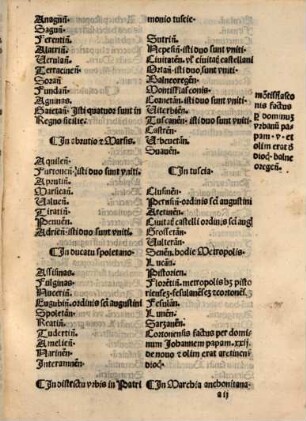 Anagnin̄.
Sagnin̄.
Ferentin̄.
Alatrin̄.
Verulan̄.
Terracinen̄.
Soran̄.
Fundan̄.
Aquinas.
Gaietan̄. Isti quatuor sunt in
Regno sicilie.
¶ In abrutio ⁊ Marsis.
Aquilen̄.
Furconen̄. isti duo sunt vniti.
Aprutin̄.
Marsican̄.
Valuen̄.
Tiratin̄.
Pennen̄.
Adrien̄. isti duo sunt vniti.
¶ In ducatu spoletano
Assisinas.
Fulginas.
Nucerin̄.
Eugubin̄. ordinis sci augustini
Spoletan̄.
Reatin̄.
Tudertin̄.
Amelien̄.
Narinen̄.
Interamnen̄.
¶ In districtu vrbis in Patri
monio tuscie.
Sutrin̄.
Nepesin̄. isti duo sunt vniti.
Ciuitaten̄. vl' ciuitat castellani
Ortan̄. isti duo sunt vniti
Balneoregen̄.
Montisflasconis.
Cornetan̄. isti duo sunt vniti.
Viterbien̄.
Tuscanen̄. isti duo sunt vniti.
Castren̄.
Vrbeuetan̄.
Suanen̄.
¶ In tuscia.
Clusinen̄.
Perusin̄. ordinis sci augustini
Aretinen̄.
Ciuitat castelli ordinis sci aug
Grossetan̄.
Vulteran̄.
Senen̄. hodie Metropolis.
Lucan̄.
Pistorien̄.
Florētin̄. metropolis hz pisto
riensez. fesulanensez ⁊ cortonen̄.
Fesulan̄.
Lunen̄.
Sarzanen̄.
Cortonensis factus per domi
num Johannem papam. xxij.
de nouo ⁊ olim erat aretinen
dioc̄.
¶ In Marchia anchonitana
a ij
mōtisflasco
nis factus
p̄ dominuȝ
vrbanū pa
pam. v. et
olim erat d
dioc̄. balne
oregen̄.